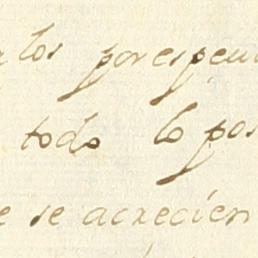 los por espe
todo lo pos
se se acrecien